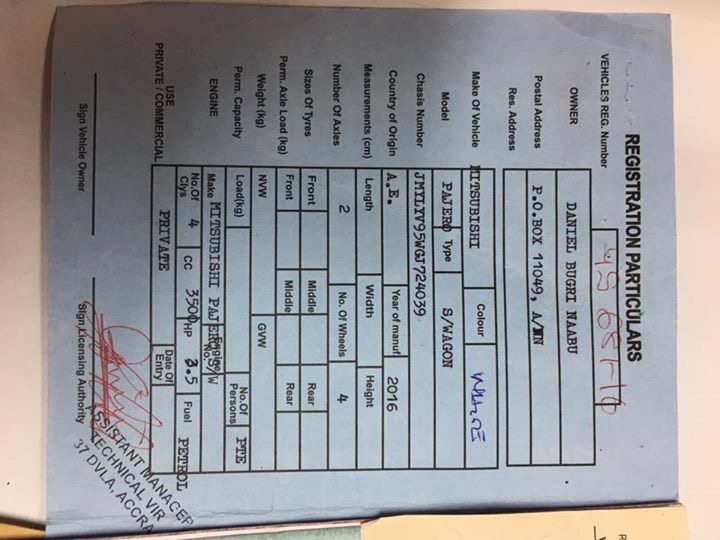 REGISTRATION PARTICULARS
VEHICLES REG. Number
OWNER DANIEL BUGRI NAABU
Postal Address P.O.BOX 11049, A/N
Res. Address
Make Of Vehicle MITSUBISHI Colour WHITE
Model PAJERO Type S/WAGON
Chasis Number JMYLYV95WGJ724039
Country of Origin A.E. Year of manuf 2016
Measurements (cm) Length Width Height
Number Of Axles 2 No. Of Wheels 4
Sizes Of Tyres Front Middle Rear
Perm. Axle Load (kg) Front Middle Rear
Weight (kg) NVW GVW
Perm. Capacity Load(kg) No.Of Persons PTE
ENGINE Make MITSUBISHI PAJERO S/W Engine No.
No.Of Clys 4 CC 3500 HP 3.5 Fuel PETROL
USE
PRIVATE / COMMERCIAL PRIVATE Date Of Entry
Sign Vehicle Owner Sign.Licensing Authority
ASSISTANT MANAGER
TECHNICAL VIR
37 DVLA, ACCRA